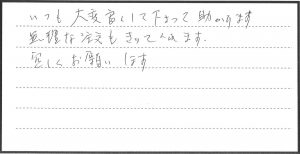 いつも大変良くして下さって助かります
無理な注文もきいてくれます。
宜しくお願いします